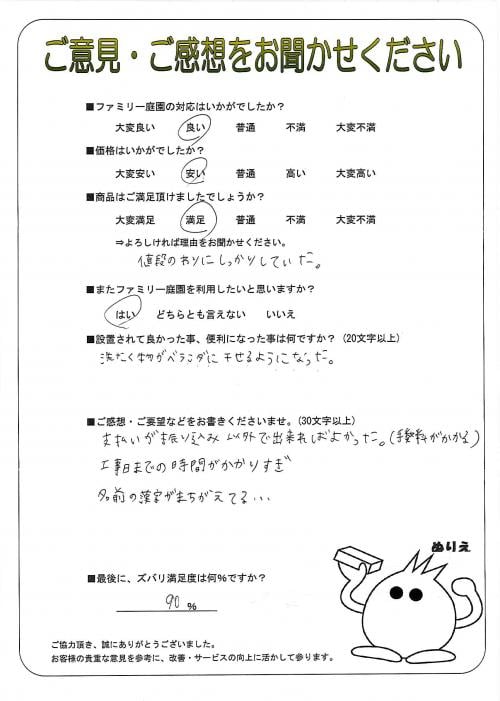 ご意見・ご感想をお聞かせください
■ファミリー庭園の対応はいかがでしたか？
大変良い 良い 普通 不満 大変不満
■価格はいかがでしたか？
大変安い 安い 普通 高い 大変高い
■商品はご満足頂けましたでしょうか？
大変満足 満足 普通 不満 大変不満
⇒よろしければ理由をお聞かせください。
値段のわりにしっかりしていた。
■またファミリー庭園を利用したいと思いますか？
はい どちらとも言えない いいえ
■設置されて良かった事、便利になった事は何ですか？（20文字以上）
洗たく物がベランダに干せるようになった。
■ご感想・ご要望などをお書きくださいませ。（30文字以上）
支払いが振り込み以外で出来ればよかった。（手数料がかかる）
工事日までの時間がかかりすぎ
名前の漢字がまちがえてる...
ぬりえ
■最後に、ズバリ満足度は何％ですか？
90 %
ご協力頂き、誠にありがとうございました。
お客様の貴重な意見を参考に、改善・サービスの向上に活かして参ります。